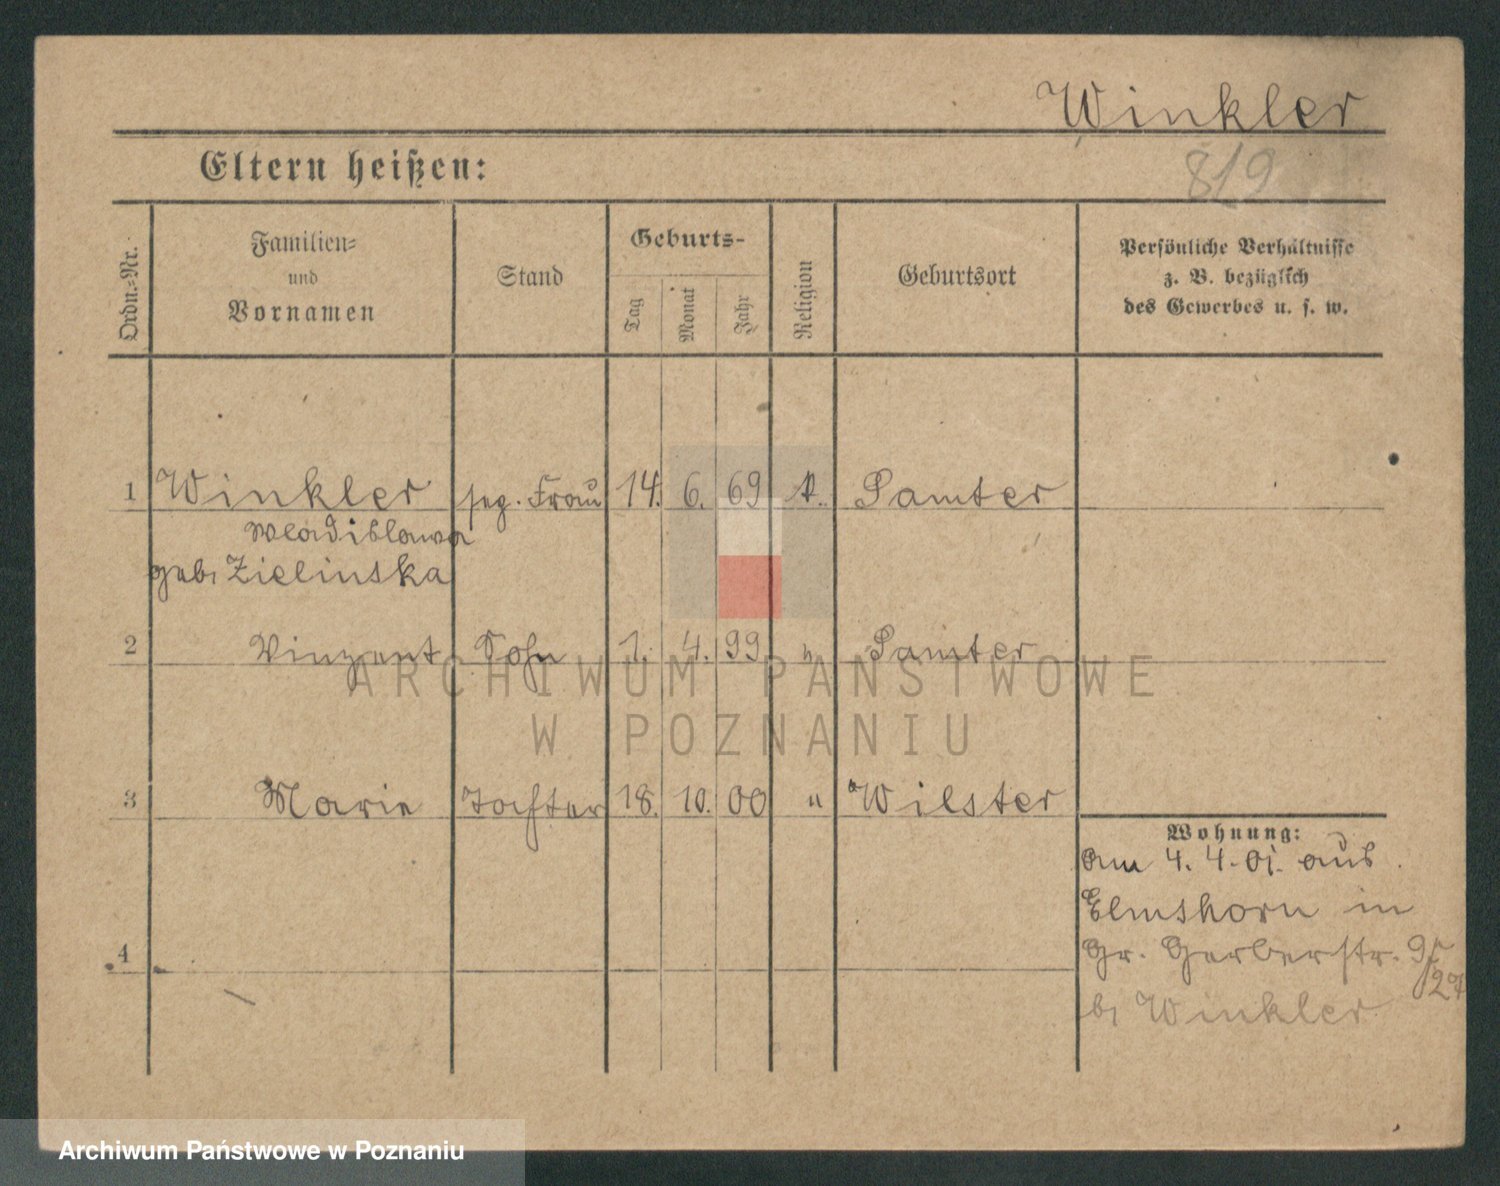 Winkler
819
Eltern heißen:
Ordn.-Nr.
Familien-
und
Vornamen
Stand
Geburts-
Tag
Monat
Jahr
Religion
Geburtsort
Persönliche Verhältnisse
z. B. bezüglich
des Gewerbes u. s. w.
1 Winkler Frau 14. 6. 69 k. Samter
Wladislawa
geb. Zielinska
2 Vinzent Sohn 1. 4. 99 " Samter
ARCHIWUM PAŃSTWOWE
W POZNANIU
3 Marie Tochter 18. 10. 00 " Wilster
Wohnung:
am 4. 4. 01. aus
Elmshorn in
4
Gr. Gerberstr. 9
b. Winkler
Archiwum Państwowe w Poznaniu